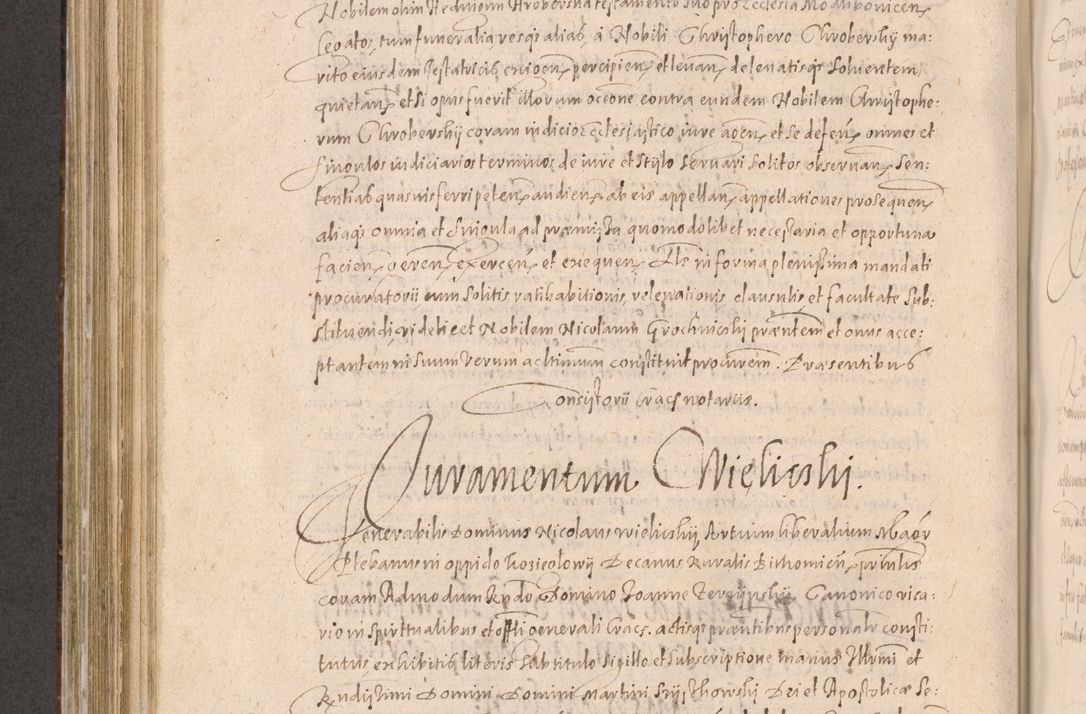 Nobilem olim Heduigim Chrobersha testamento suo pro Ecclesia
Legatos, tum funeralia resqs alias, à Nobili Christophero Chrobershij ma:
rito eiusdem Testatricis, exigen percipien et levan de levatisqs Solventem
quietan et si opus fuerit illorum occone contra eundem Nobilem Christophe:
rum Chrobershij coram iudicio Ecclesiastico iure agen et se defen omnes et
singulos iudiciarios terminos de iure et Stylo servari solitos observan, Sen:
tentias quasuis ferri peten audien ab eis appellan appellationes prosequen
aliaqs omnia et singula ad præmissa quomodolibet necessaria et opportuna
facien geren exercen et exequen. Etc in forma plenissima mandati
procuratorij cum solitis ratihabitionis, relevationis clausulis et facultate sub:
stituendi, videlicet Nobilem Nicolaum Grochowski præntem et onus acce:
ptantem in suum verum ac ltimum constituit procurem. Præsentibus
Consistorij Cracs notarius.
Juramentum Więlicshi.
Venerabilis Dominus Nicolaus Wielicshij Artium liberalium Magr
Plebanus in oppido Koziegłowij Decanus Ruralis Bithomien prntis
coram Admodum Rndo Domino Joanne Canonico vica:
rio in spirttualibus et offli generali Cracs. actisqs præntibus personalr consti:
tutus, exhibitis literis sub titulo sigillo et subscriptione manus Illrmi et
Rndissimi Domini Domini Martini Szyszkowshij Dei et Apostolicæ Se: